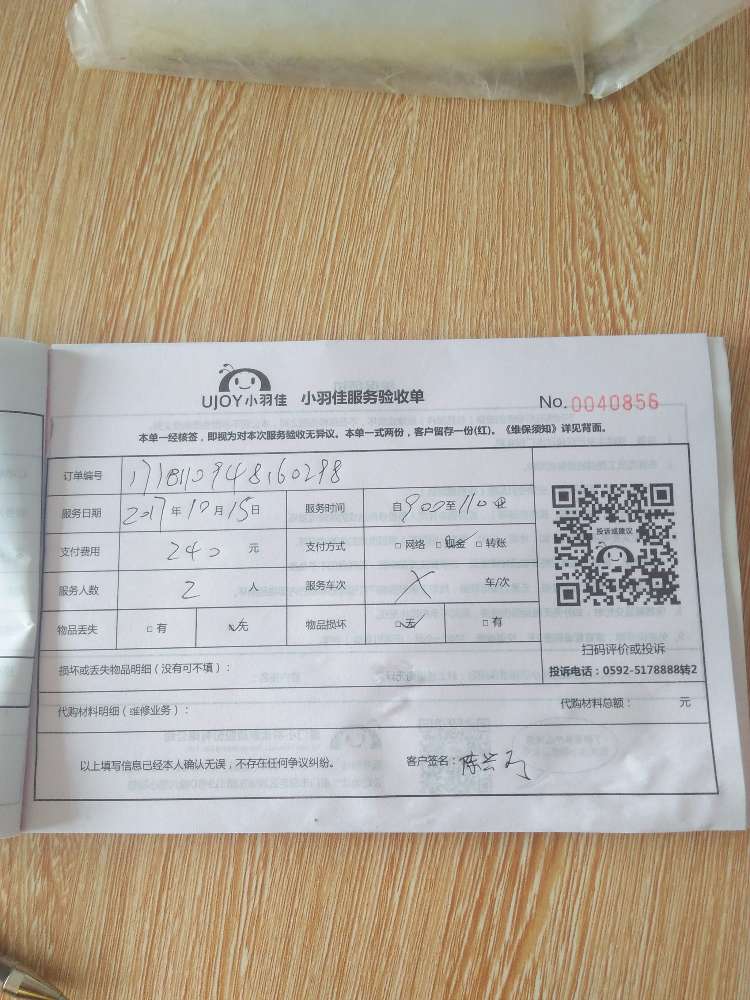 UJOY小羽佳 小羽佳服务验收单 No.0040856
本单一经核签，即视为对本次服务验收无异议。本单一式两份，客户留存一份(红)。《维保须知》详见背面。
订单编号
服务日期 2017年10月15日 服务时间 自900至1100止
支付费用 240元 支付方式 □网络 □现金 □转账
投诉或建议
服务人数 2人 服务车次 X 车/次
物品丢失 □有 □无 物品损坏 □无 □有
扫码评价或投诉
损坏或丢失物品明细（没有可不填）：
投诉电话：0592-5178888转2
代购材料明细（维修业务）： 代购材料总额： 元
以上填写信息已经本人确认无误，不存在任何争议纠纷。 客户签名：